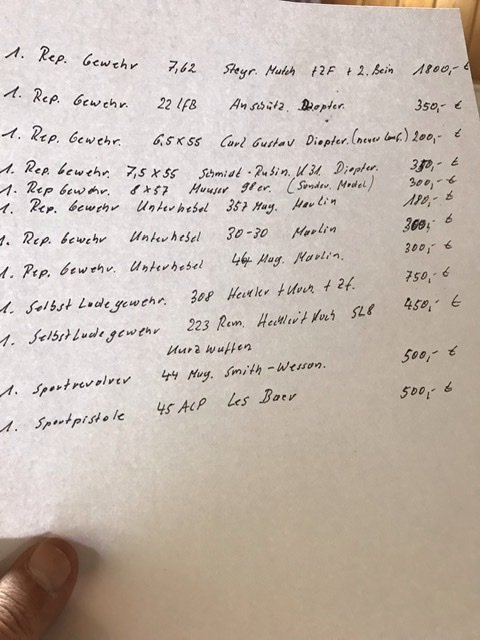 1. Rep. Gewehr 7,62 Steyr. Match + ZF + 2. Bein 1800,- €
1. Rep. Gewehr. 22 lfB Anschütz. Diopter. 350,- €
1. Rep. Gewehr. 6,5 x 55 Carl Gustav Diopter. (neuer Lauf.) 200,- €
1. Rep. Gewehr. 7,5 x 55 Schmidt-Rubin. K31. Diopter. €
1. Rep Gewehr. 8 x 57 Mauser 98er. (Sonder. Model) 300,- €
1. Rep. Gewehr Unterhebel 357 Mag. Marlin 180,- €
1. Rep. Gewehr Unterhebel 30-30 Marlin 300,- €
1. Rep. Gewehr. Unterhebel 44 Mag. Marlin. 300,- €
1. Selbst Ladegewehr. 308 Heckler + Koch + Zf. 750,- €
1. Selbstladegewehr 223 Rem. Heckler + Koch SL8 450,- €
Kurzwaffen
1. Sportrevolver 44 Mag. Smith-Wesson. 500,- €
1. Sportpistole 45 ACP Les Baer 500,- €